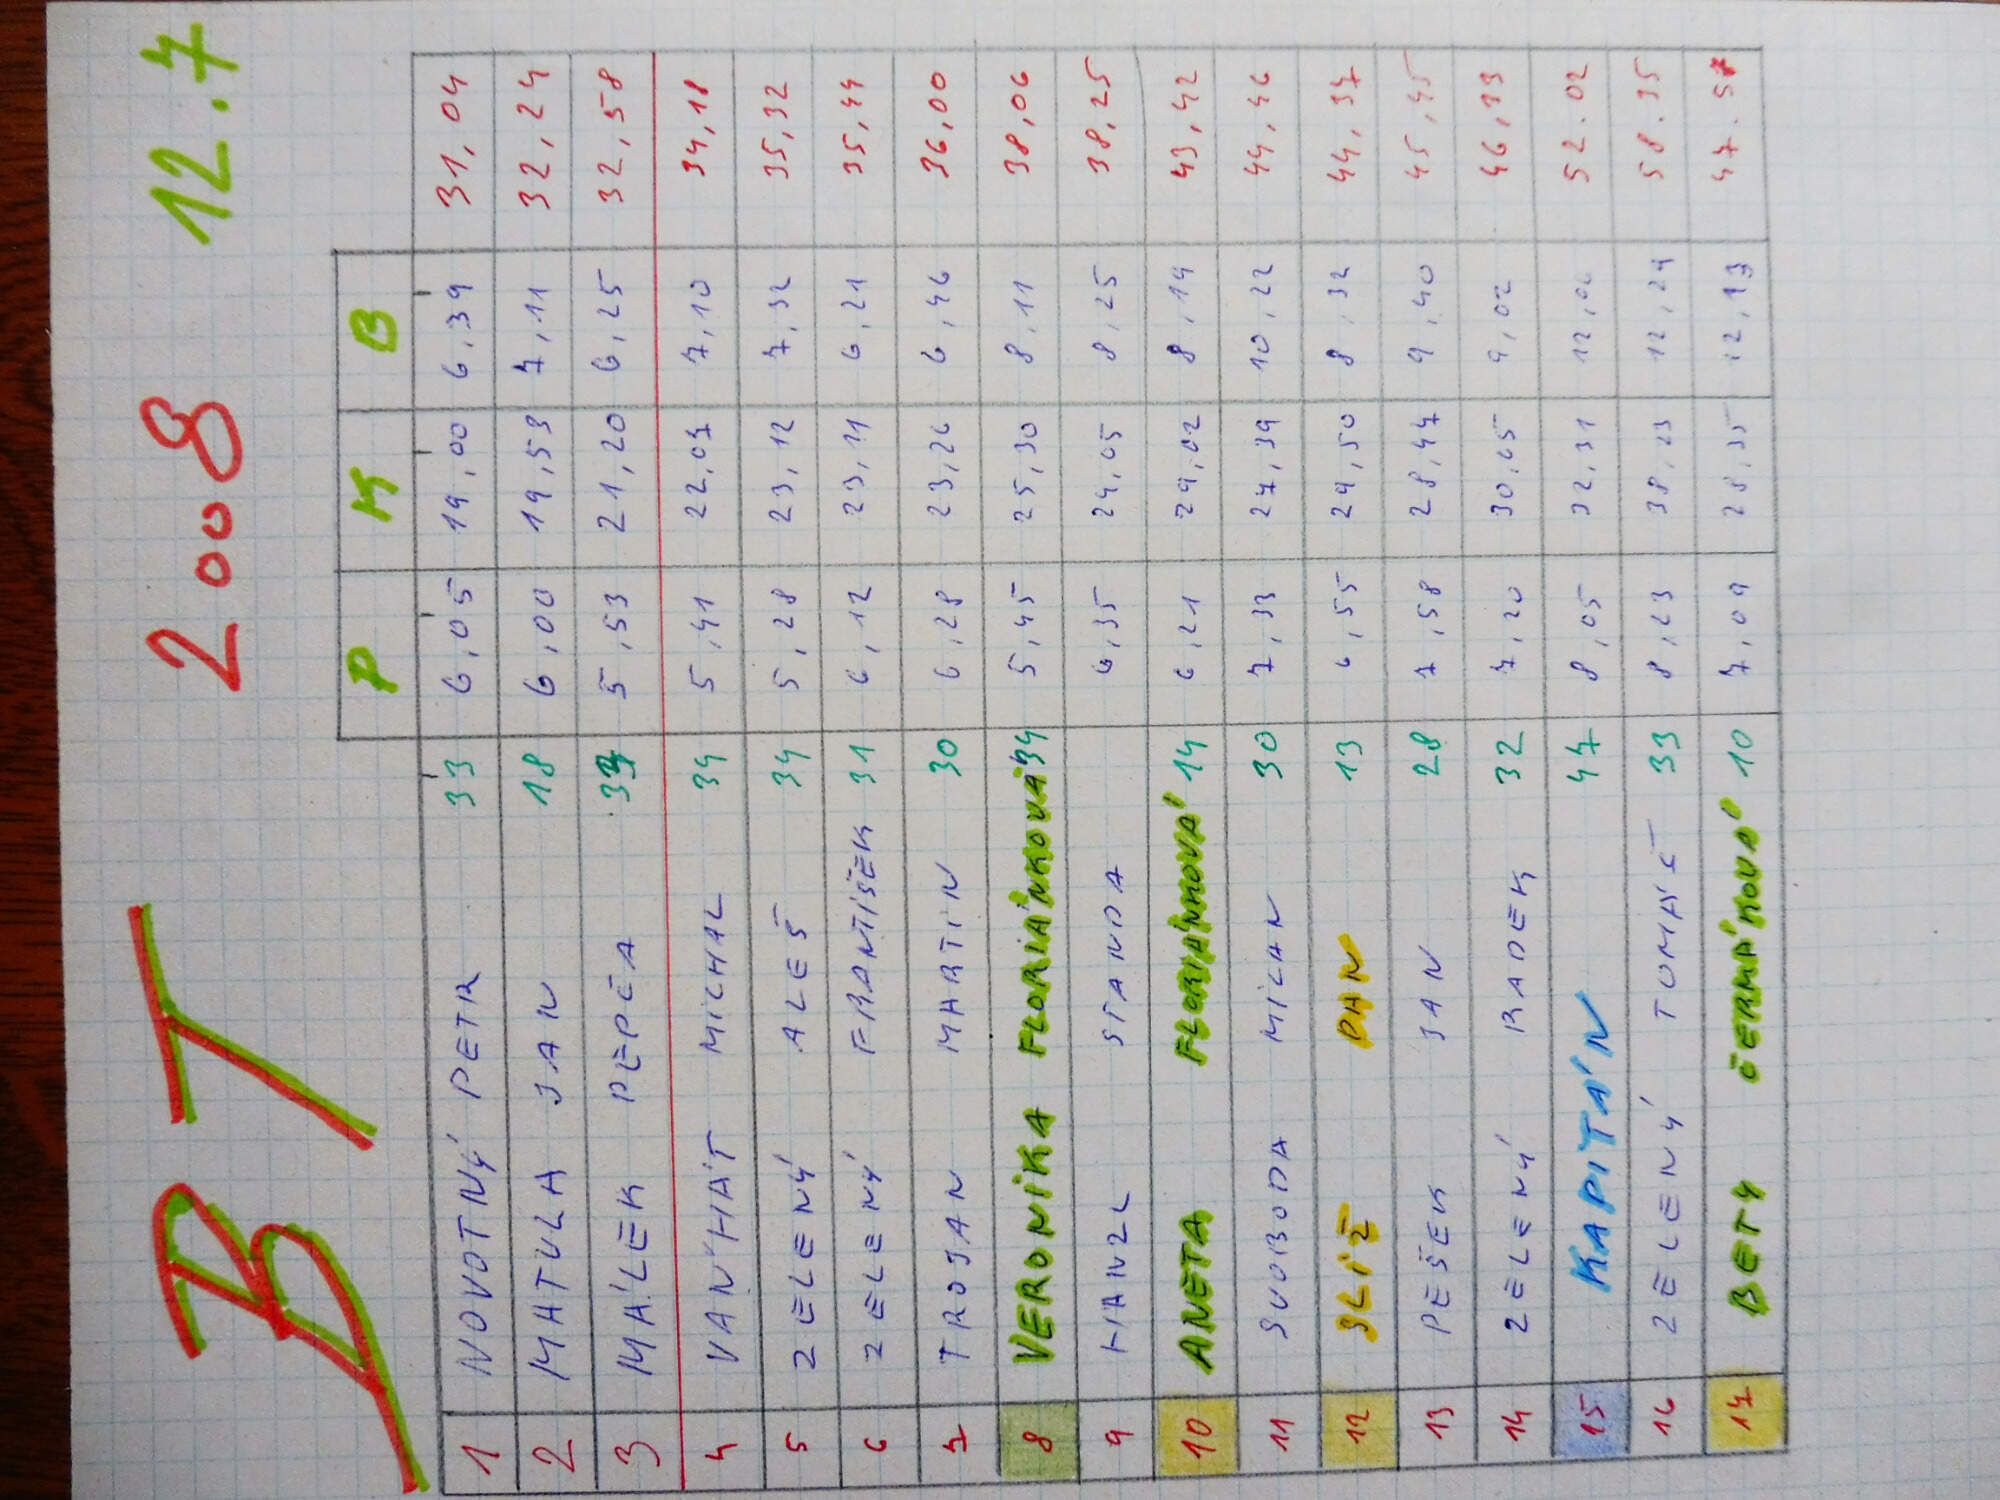 BT 2008 12.7
P K B
1 NOVOTNÝ PETR 33 6,05 19,00 6,39 31,04
2 MATULA JAN 18 6,00 19,53 7,11 32,24
3 MÁLEK PEPÉA 5,53 21,20 6,25 32,58
4 VAN'HÁT MICHAL 34 5,41 34,18
5 ZELENÝ ALEŠ 34 5,28 23,12 7,32 35,32
6 ZELENÝ FRANTIŠEK 31 6,12 23,11 6,21 35,44
7 TROJAN MARTIN 30 6,28 23,26 6,46 36,00
8 VERONIKA FLORIÁNKOVÁ 34 5,45 25,30 8,11 38,06
9 HANZL STANDA 6,35 24,05 8,25 38,25
10 ANETA FLORIÁNKOVÁ 14 6,21 29,02 8,19 43,42
11 SVOBODA MILAN 30 7,33 27,39 10,22 44,46
12 SLIŽ PAN 13 6,55 29,50 8,32 44,37
13 PEŠEK JAN 28 7,58 28,47 9,40 45,45
14 ZELENÝ RADEK 32 7,20 30,05 9,02 46,13
15 KAPITÁN 47 8,05 32,31 12,02 52.02
16 ZELENÝ TOMÁŠ 33 8,23 38,23 12,24 58.35
17 BETY ČERMÁKOVÁ 10 7,09 28,35 12,13